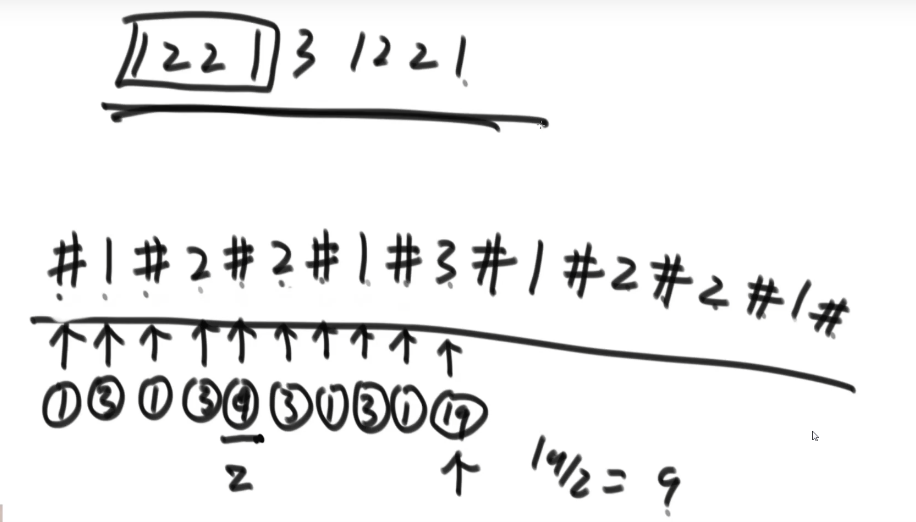 1 2 2 1 3 1 2 2 1
# 1 # 2 # 2 # 1 # 3 # 1 # 2 # 2 # 1 #
1 3 1 3 9 3 1 3 1 19
2 19/2 = 9